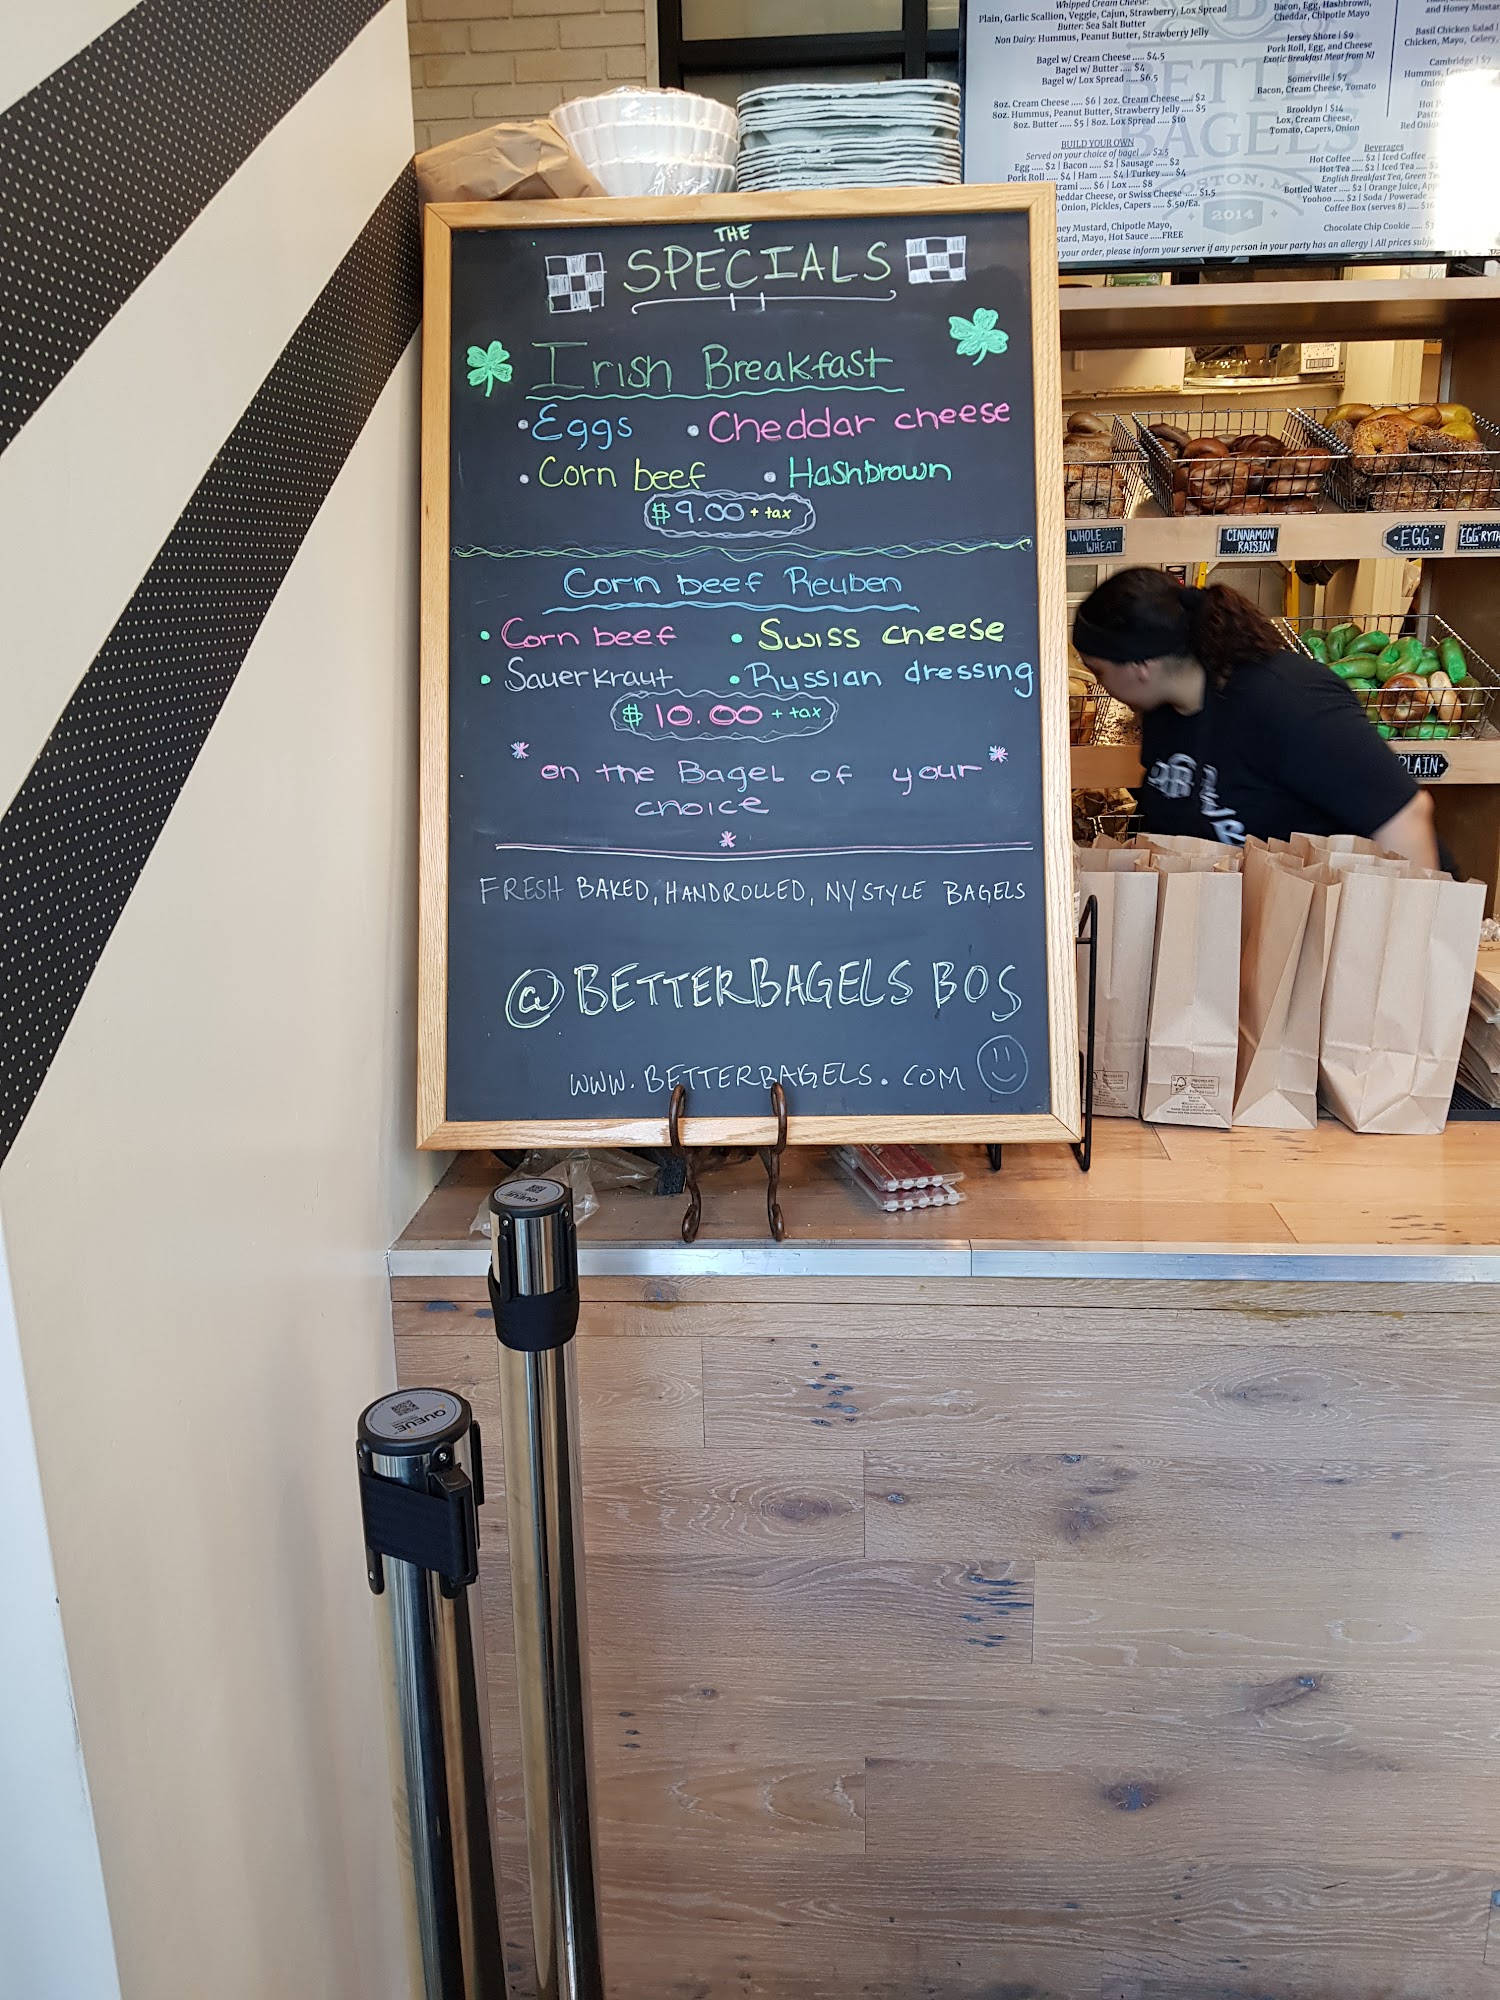 THE
SPECIALS
Irish Breakfast
• Eggs • Cheddar cheese
• Corn beef • Hashbrown
$ 9.00 + tax
Corn beef Reuben
• Corn beef • Swiss cheese
• Sauerkraut • Russian dressing
$ 10.00 + tax
* on the Bagel of your *
choice
*
FRESH BAKED, HANDROLLED, NY STYLE BAGELS
@BETTERBAGELS BOS
WWW.BETTERBAGELS.COM
Whipped Cream Cheese:
Plain, Garlic Scallion, Veggie, Cajun, Strawberry, Lox Spread
Butter: Sea Salt Butter
Non Dairy: Hummus, Peanut Butter, Strawberry Jelly
Bagel w/ Cream Cheese ..... $4.5
Bagel w/ Butter ..... $4
Bagel w/ Lox Spread ..... $6.5
8oz. Cream Cheese ..... $6 | 2oz. Cream Cheese ..... $2
8oz. Hummus, Peanut Butter, Strawberry Jelly ..... $5
8oz. Butter ..... $5 | 8oz. Lox Spread ..... $10
BUILD YOUR OWN
Served on your choice of bagel .... $2.5
Egg ..... $2 | Bacon ..... $2 | Sausage ..... $2
Pork Roll ..... $4 | Ham ..... $4 | Turkey ..... $4
$6 | Lox ..... $8
Cheese, or Swiss Cheese ..... $1.5
Onion, Pickles, Capers ..... $.50/Ea.
Mustard, Chipotle Mayo,
Mayo, Hot Sauce .....FREE
Bacon, Egg, Hashbrown,
Cheddar, Chipotle Mayo
Jersey Shore | $9
Pork Roll, Egg, and Cheese
Exotic Breakfast Meat from NJ
Somerville | $7
Bacon, Cream Cheese, Tomato
Brooklyn | $14
Lox, Cream Cheese,
Tomato, Capers, Onion
and Honey
Basil Chicken Salad |
Chicken, Mayo, Celery,
Cambridge | $7
Hummus,
Beverages
Hot Coffee ..... $2 | Iced Coffee
Hot Tea ..... $2 | Iced Tea
English Breakfast Tea, Green
Bottled Water ..... $2 | Orange Juice,
Yoohoo ..... $2 | Soda / Powerade
Coffee Box (serves 8) .....
Chocolate Chip Cookie .....
your order, please inform your server if any person in your party has an allergy | All prices
BETTER
BAGELS
2014
WHOLE
WHEAT
CINNAMON
RAISIN
• EGG •
PLAIN
QUEUE
QUEUE